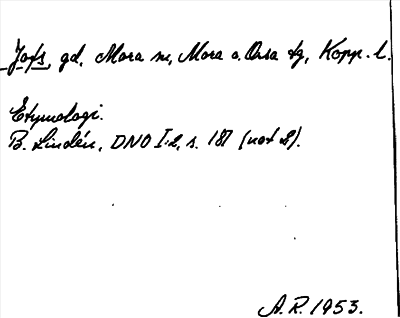 Jofs, gd, Mora sn, Mora o. Orsa tg, Kopp. l.
Etymologi.
B. Lindén, DNO I:2, s. 187 (not 8).
A.R. 1953.